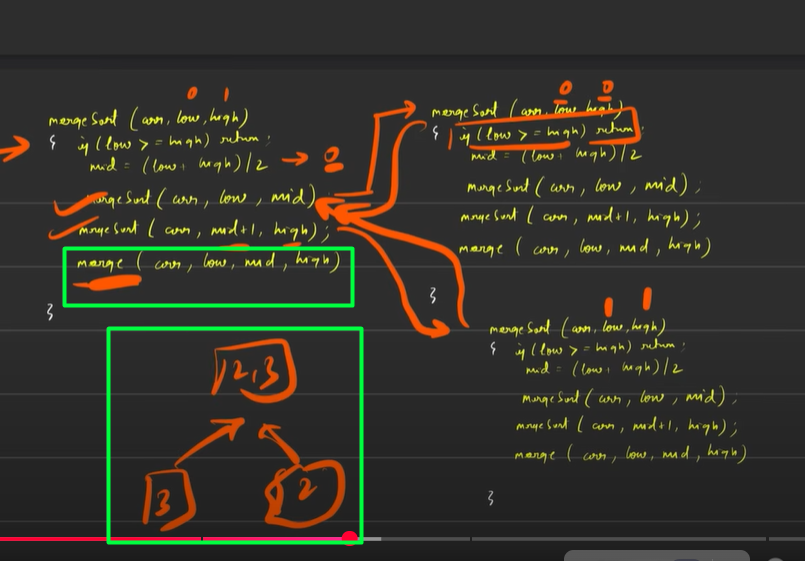 0 1
mergeSort (arr, low, high)
{ if (low >= high) return;
mid = (low + high)/2 → 0
mergeSort (arr, low, mid);
mergeSort (arr, mid+1, high);
merge (arr, low, mid, high)
}
[2,3]
[3] [2]
0 0
mergeSort (arr, low, high)
{ if (low >= high) return;
mid = (low + high)/2
mergeSort (arr, low, mid);
mergeSort (arr, mid+1, high);
merge (arr, low, mid, high)
}
1 1
mergeSort (arr, low, high)
{ if (low >= high) return;
mid = (low + high)/2
mergeSort (arr, low, mid);
mergeSort (arr, mid+1, high);
merge (arr, low, mid, high)
}